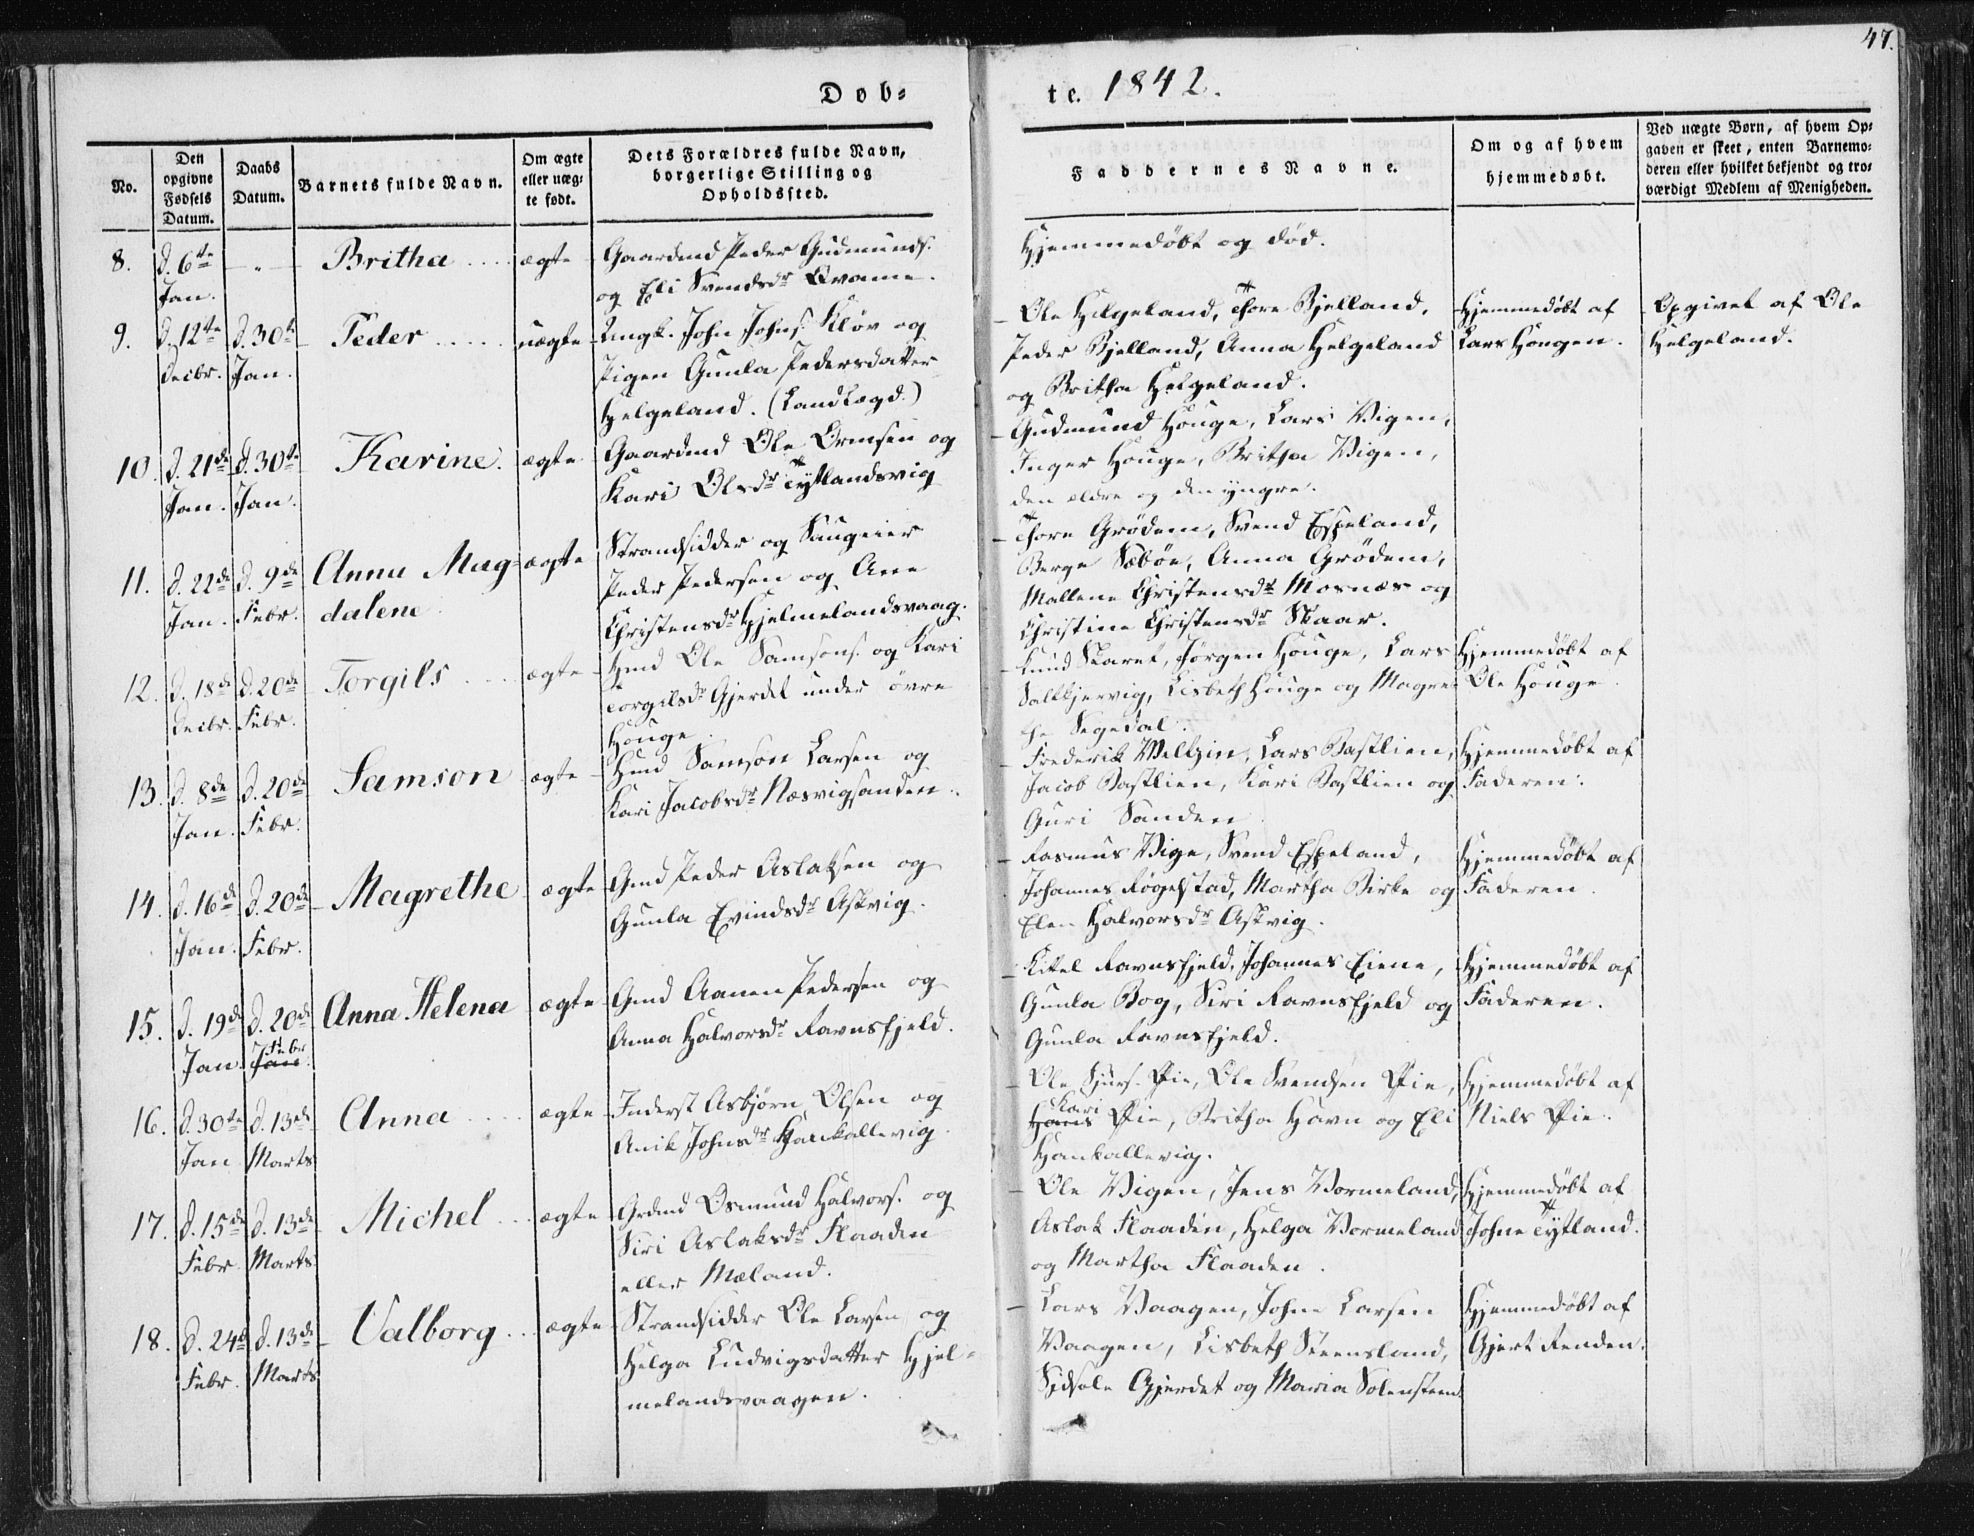 47.
Døb=
te. 1842.
No.
Den opgivne Fødsels Datum.
Daabs Datum.
Barnets fulde Navn.
Om ægte eller uæg= te født.
Dets Forældres fulde Navn, borgerlige Stilling og Opholdssted.
Faddernes Navne.
Om og af hvem hjemmedøbt.
Ved uægte Børn, af hvem Op= gaven er skeet, enten Barnemo= deren eller hvilket bekjendt og tro= værdigt Medlem af Menigheden.
8. d. 6te Jan. — „ — Britha .... ægte
Gaardmd Peder Gudmunds.
og Eli Svendsdr Qvame.
Hjemmedøbt og død.
9. d. 12te Decbr. d. 30te Jan. Peder ..... uægte
Ungk. John Johns. Kløv og
Pigen Gunla Pedersdatter
Helgeland. (Landlægd.)
Ole Helgeland, Thore Bjelland,
Peder Bjelland, Anna Helgeland
og Britha Helgeland.
Hjemmedøbt af
Lars Hougen.
Opgivet af Ole
Helgeland.
10. d. 21de Jan. d. 30te Jan. Karine. ægte
Gaardmd Ole Ormsen og
Kari Olsdr Tytlandsvig
Gudmund Houge, Lars Vigen,
Inger Houge, Britha Vigen,
den ældre og den yngre.
11. d. 22de Jan. d. 9de Febr. Anna Mag=
dalene ægte
Strandsidder og Saugeier
Peder Pedersen og Ane
Christensdr Hjelmelandsvaag.
Thore Grødem, Svend Espeland,
Berge Sæbøe, Anna Grødem,
Mallene Christensdr Mosnæs og
Christine Christensdr Skaar.
12. d. 18de Decbr. d. 20de Febr. Torgils .... ægte
Hmd Ole Samsons. og Kari
Torgilsdr Gjerdet under øvre
Houge.
Knud Skaret, Jørgen Houge, Lars
Saltkjervig, Lisbeth Houge og Magre=
the Segedal.
Hjemmedøbt af
Ole Houge.
13. d. 8de Jan. d. 20de Febr. Samson ægte
Hmd Samson Larsen og
Kari Jacobsdr Næsvigsanden.
Frederik Meltzin, Lars Bastlien,
Jacob Bastlien, Kari Bastlien og
Guri Sanden.
Hjemmedøbt af
Faderen.
14. d. 16de Jan. d. 20de Febr. Magrethe ægte
Gmd Peder Aslaksen og
Gunla Evindsdr Askvig.
Rasmus Vige, Svend Espeland,
Johannes Føgelstad, Martha Birke og
Elen Halvorsdr Askvig.
Hjemmedøbt af
Faderen.
15. d. 19de Jan. d. 20de Febr Jan. Anna Helena ægte
Gmd Aanen Pedersen og
Anna Halvorsdr Ravnsfjeld.
Kittel Ravnsfjeld, Johannes Eiene,
Gunla Bog, Siri Ravnsfjeld og
Gunla Ravnsfjeld.
Hjemmedøbt af
Faderen.
16. d. 30te Jan d. 13de Marts Anna .... ægte
Inderst Asbjørn Olsen og
Anik Johnsdr Hankallevig
Ole Sjurs. Øie, Ole Svendsen Øie,
Kari
Hans Øie, Britha Havn og Eli
Hankallevig.
Hjemmedøbt af
Niels Øie.
17. d. 15de Febr d. 13de Marts Michel ... ægte
Grdmd Osmund Halvors. og
Siri Aslaksdr Flaaden
eller Mæland.
Ole Vigen, Jens Vormeland,
Aslak Flaaden, Helga Vormeland
og Martha Flaaden.
Hjemmedøbt af
Johne Tytland.
18. d. 24de Febr. d. 13de Marts Valborg .. ægte
Strandsidder Ole Larsen og
Helga Ludvigsdatter Hjel=
melandsvaagen.
Lars Vaagen, Johne Larsen
Vaagen, Lisbeth Steensland,
Sidsele Gjerdet og Maria Solensteen
Hjemmedøbt af
Gjert Renden.